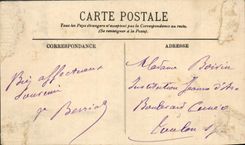 CARTE POSTALE
Tous les Pays étrangers n'acceptent pas la Correspondance au recto.
(Se renseigner à la Poste)
CORRESPONDANCE
ADRESSE
Bien affectueux
Souvenir
Madame
Institution Jeanne d'Arc
Boulevard
Toulon